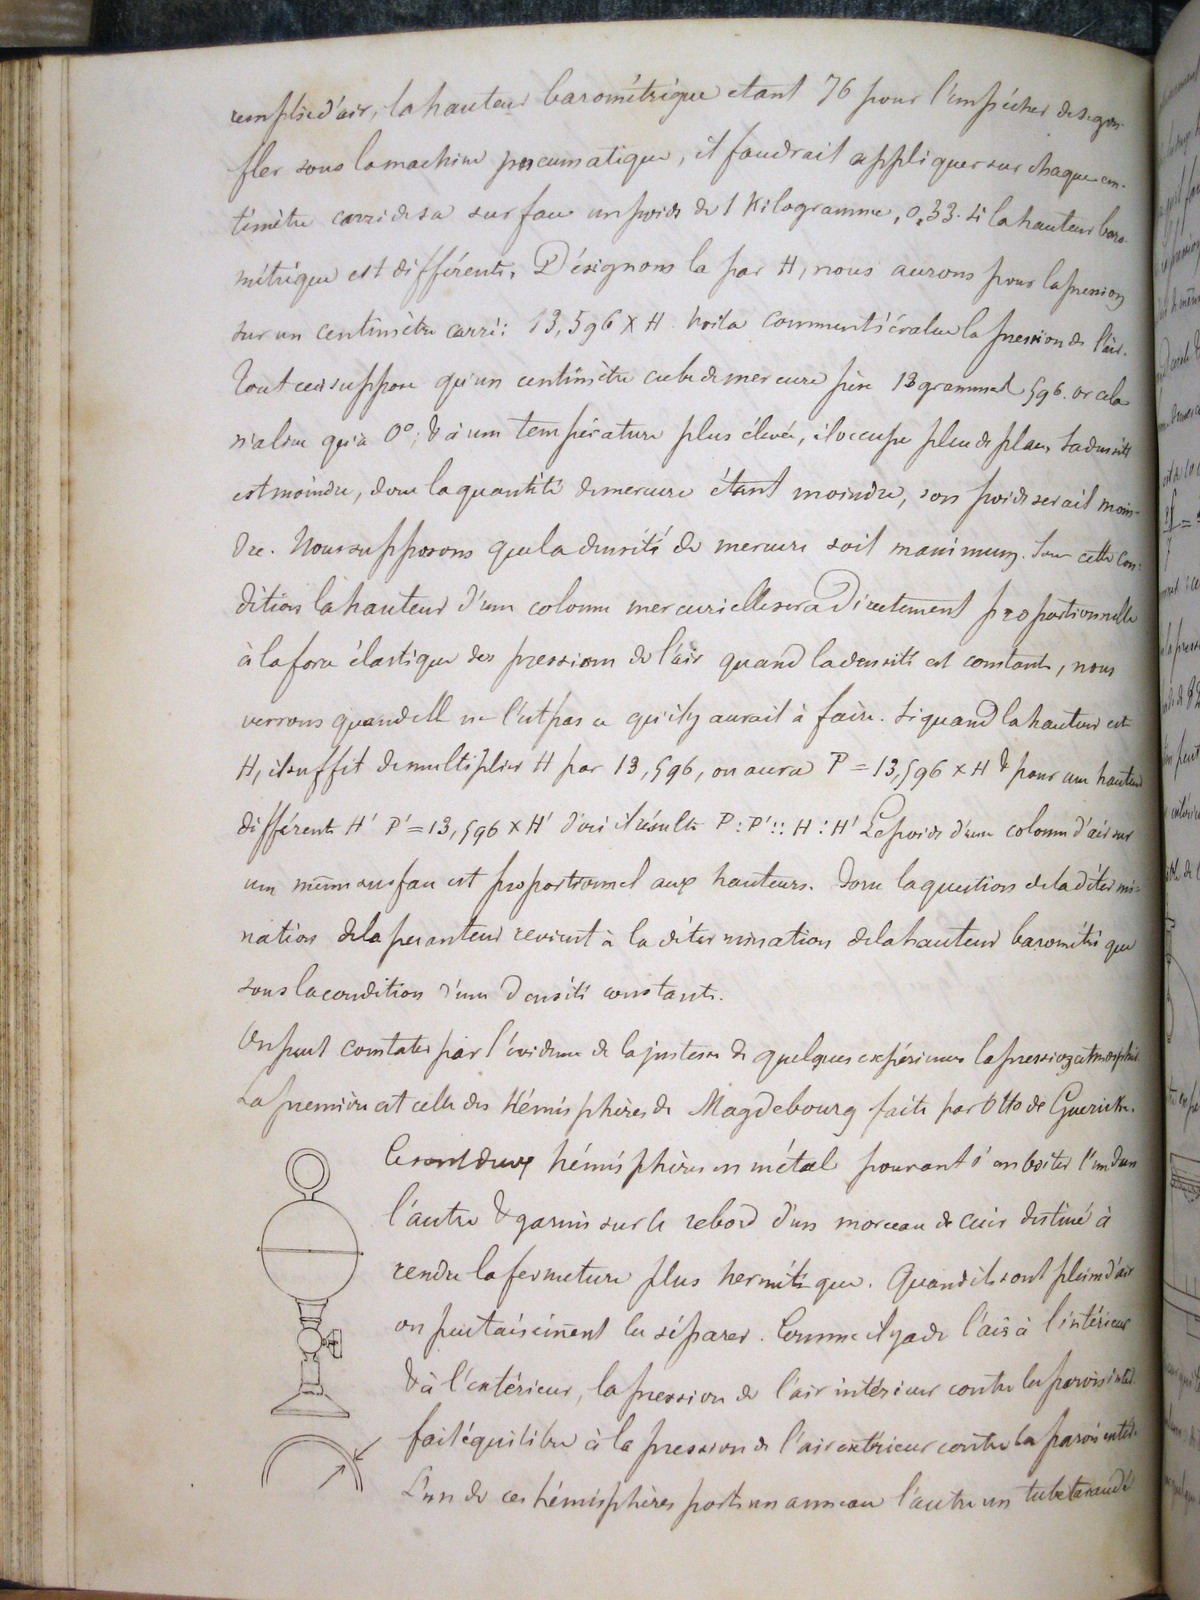 remplie d'air, la hauteur barométrique etant 76 pour l'empécher de se gon-
fler sous la machine pneumatique, il faudrait appliquer sur chaque cen-
timètre carré de sa surface un poids de 1 Kilogramme, 0,33. Si la hauteur baro-
métrique est différente, Désignons la par H, nous aurons pour la pression
sur un centimètre carré: 13,596 X H. Voila comment s'évalue la pression de l'air.
Tout ceci suppose qu'un centimètre cube de mercure pèse 13 grammes 596. or cela
n'a lieu qu'à 0°, & à une température plus élevée, il occupe plus de place, sa densité
est moindre, donc la quantité de mercure étant moindre, son poids serait moin-
dre. Nous supposons que la densité du mercure soit maximum. Sous cette con-
dition la hauteur d'une colonne mercurielle sera Directement proportionnelle
à la force élastique des pressions de l'air quand la densité est constante, nous
verrons quand elle ne l'est pas ce qu'il y aurait à faire. Si quand la hauteur est
H, il suffit de multiplier H par 13,596, on aura P = 13,596 x H & pour une hauteur
différente H' P' = 13,596 X H' d'où il résulte P : P' :: H : H' Le poids d'une colonne d'air sur
une même surface est proportionnel aux hauteurs. Donc la question de la détermi-
nation de la pesanteur revient à la détermination de la hauteur barométrique
sous la condition d'une Densité constante.
On peut constater par l'évidence de la justesse de quelques expériences la pression atmosphé.
La première est celle des Hémisphères de Magdebourg faite par Otto de Guericke.
Ce sont deux hémisphères en métal pouvant s'emboiter l'un dans
l'autre & garnis sur le rebord d'un morceau de cuir destiné à
rendre la fermeture plus hermétique. Quand ils sont pleins d'air
on peut aisément les séparer. Comme il y a de l'air à l'intérieur
& à l'extérieur, la pression de l'air intérieur contre les parois intér.
fait équilibre à la pression de l'air extérieur contre les parois extér.
L'un de ces hémisphères porte un anneau l'autre un tube taraudé